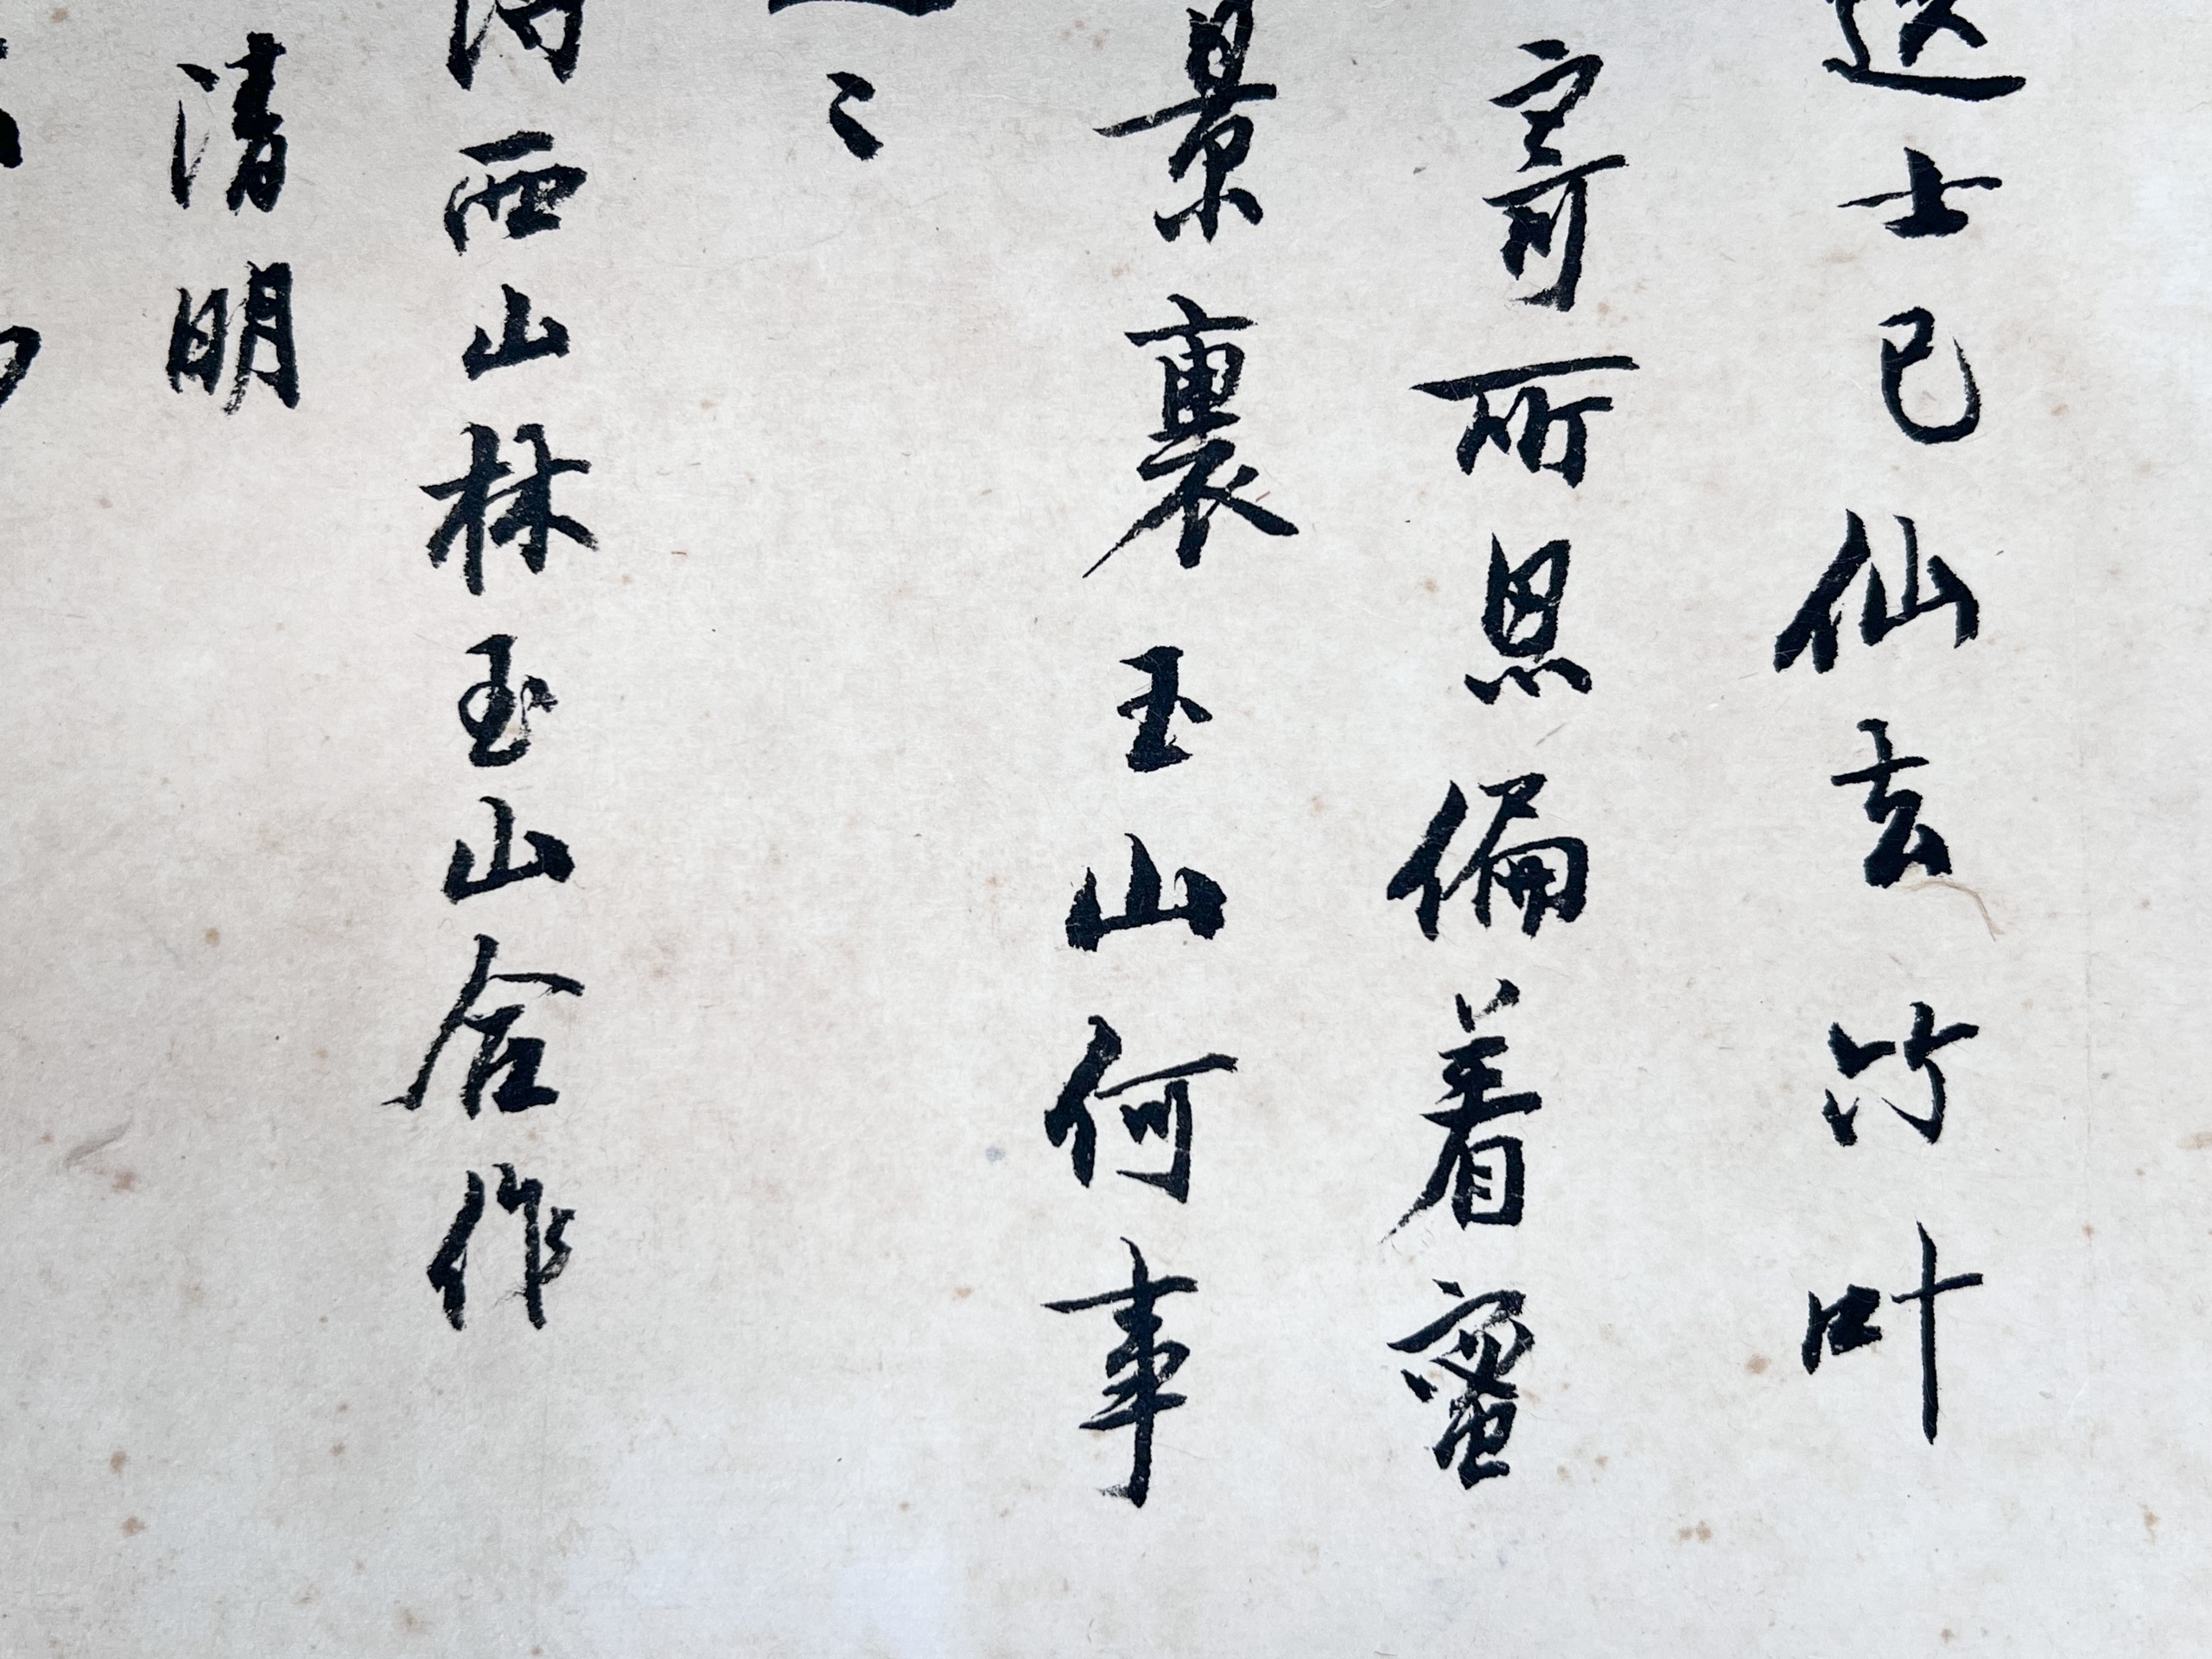 士已仙去竹叶
寄所思偏着蜜
景裏玉山何事
西山林玉山合作
清明